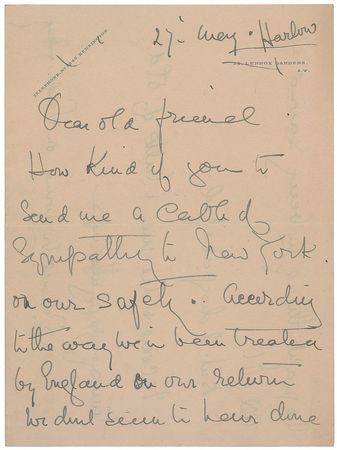 TELEPHONE, NO. 1645 KENSINGTON
27th May. Harlow
LENNOX GARDENS,
S.W.
Dear old friend.
How kind of you to
send me a cable of
sympathy to New York.
on our safety.. According
to the way we've been treated
by England on our return
We dont seem to have done